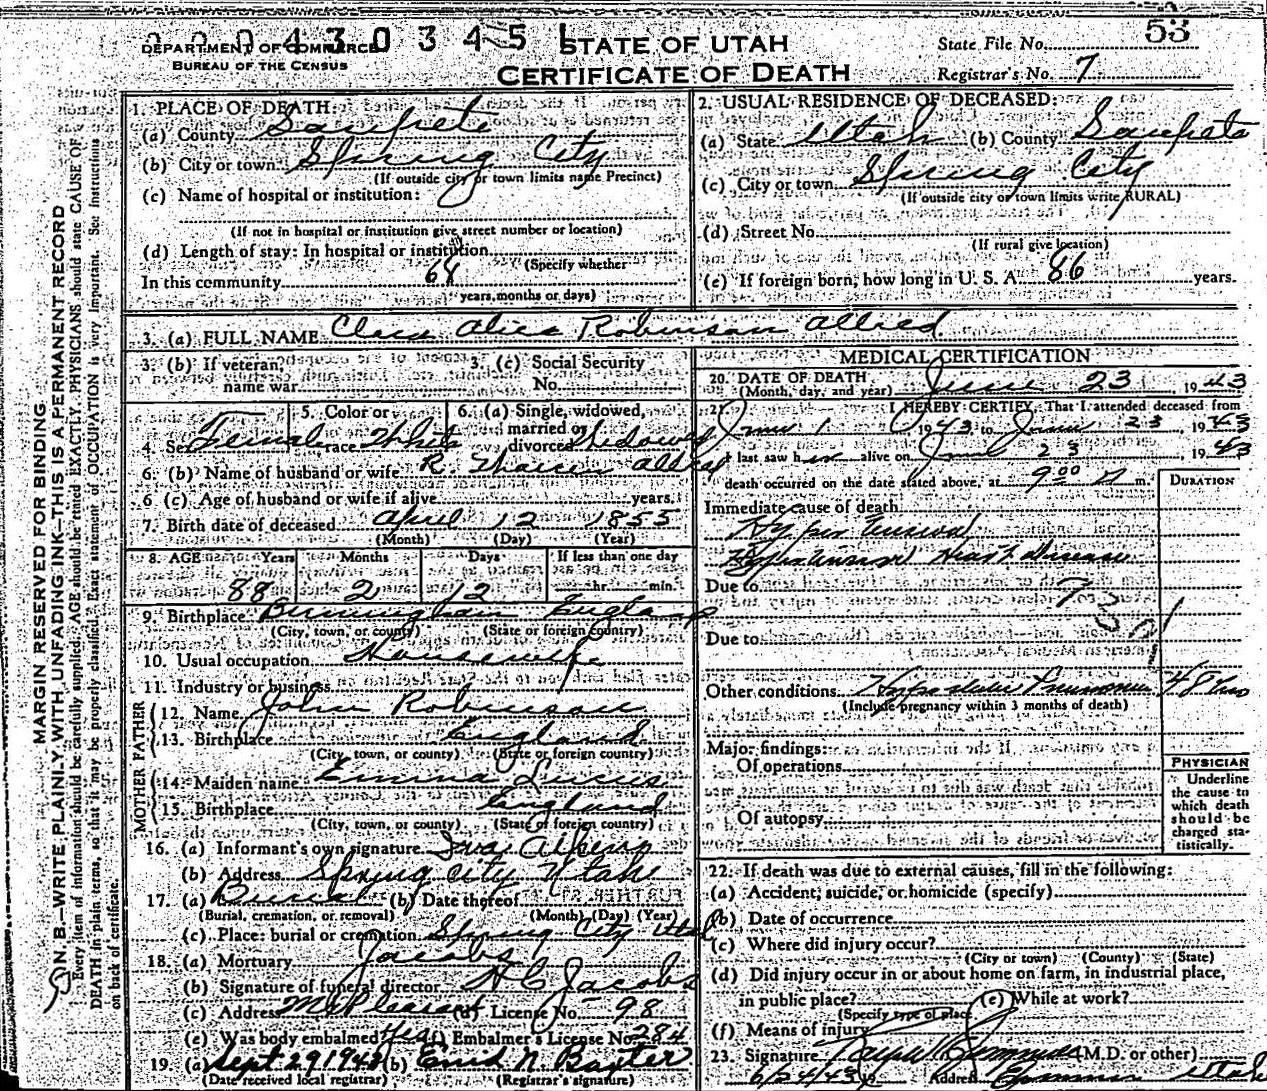 DEPARTMENT OF COMMERCE
BUREAU OF THE CENSUS
STATE OF UTAH
CERTIFICATE OF DEATH
State File No. 53
Registrar's No. 7
MARGIN RESERVED FOR BINDING
N. B.—WRITE PLAINLY WITH UNFADING INK—THIS IS A PERMANENT RECORD
Every item of information should be carefully supplied. AGE should be stated EXACTLY. PHYSICIANS should state CAUSE OF
DEATH in plain terms, so that it may be properly classified. Exact statement of OCCUPATION is very important. See instructions
on back of certificate.
1. PLACE OF DEATH
(a) County Sanpete
(b) City or town Spring City
(If outside city or town limits name Precinct)
(c) Name of hospital or institution:
(If not in hospital or institution give street number or location)
(d) Length of stay: In hospital or institution
(Specify whether
In this community 68
years, months or days)
2. USUAL RESIDENCE OF DECEASED:
(a) State Utah (b) County Sanpete
(c) City or town Spring City
(If outside city or town limits write RURAL)
(d) Street No.
(If rural give location)
(e) If foreign born, how long in U. S. A. 86 years.
3. (a) FULL NAME Clara Alice Robinson Allred
3. (b) If veteran,
name war
3. (c) Social Security
No.
4. Sex Female
5. Color or
race White
6. (a) Single, widowed,
married or
divorced Widowed
6. (b) Name of husband or wife R. Allred
6 (c) Age of husband or wife if alive years.
7. Birth date of deceased April 12 1855
(Month) (Day) (Year)
8. AGE Years Months Days If less than one day
88 2 12 hr. min.
9. Birthplace Birmingham England
(City, town, or county) (State or foreign country)
10. Usual occupation Housewife
11. Industry or business
FATHER
12. Name John Robinson
13. Birthplace England
(City, town, or county) (State or foreign country)
MOTHER
14. Maiden name Emma Lucus
15. Birthplace England
(City, town, or county) (State or foreign country)
16. (a) Informant's own signature
(b) Address Spring City Utah
17. (a) Burial (b) Date thereof
(Burial, cremation, or removal) (Month) (Day) (Year)
(c) Place: burial or cremation Spring City Utah
18. (a) Mortuary Jacobs
(b) Signature of funeral director H C Jacobs
(c) Address Mt Pleasant (d) License No. 98
(e) Was body embalmed Yes (f) Embalmer's License No. 284
19. (a) Sept 29 1943 (b) Enid N. Baxter
(Date received local registrar) (Registrar's signature)
MEDICAL CERTIFICATION
20. DATE OF DEATH
(Month, day, and year) June 23, 1943
21. I HEREBY CERTIFY, That I attended deceased from
June 1 1943 to June 23, 1943
I last saw her alive on June 23, 1943
death occurred on the date stated above, at 9:00 m.
DURATION
Immediate cause of death
Hypertensive Heart Disease
Due to
Due to
Other conditions Hypostatic Pneumonia 48 hrs
(Include pregnancy within 3 months of death)
Major findings:
Of operations
Of autopsy
PHYSICIAN
Underline
the cause to
which death
should be
charged sta-
tistically.
22. If death was due to external causes, fill in the following:
(a) Accident, suicide, or homicide (specify)
(b) Date of occurrence
(c) Where did injury occur?
(City or town) (County) (State)
(d) Did injury occur in or about home on farm, in industrial place,
in public place? (e) While at work?
(Specify type of place)
(f) Means of injury
23. Signature (M.D. or other)
6/24/43 Address Utah